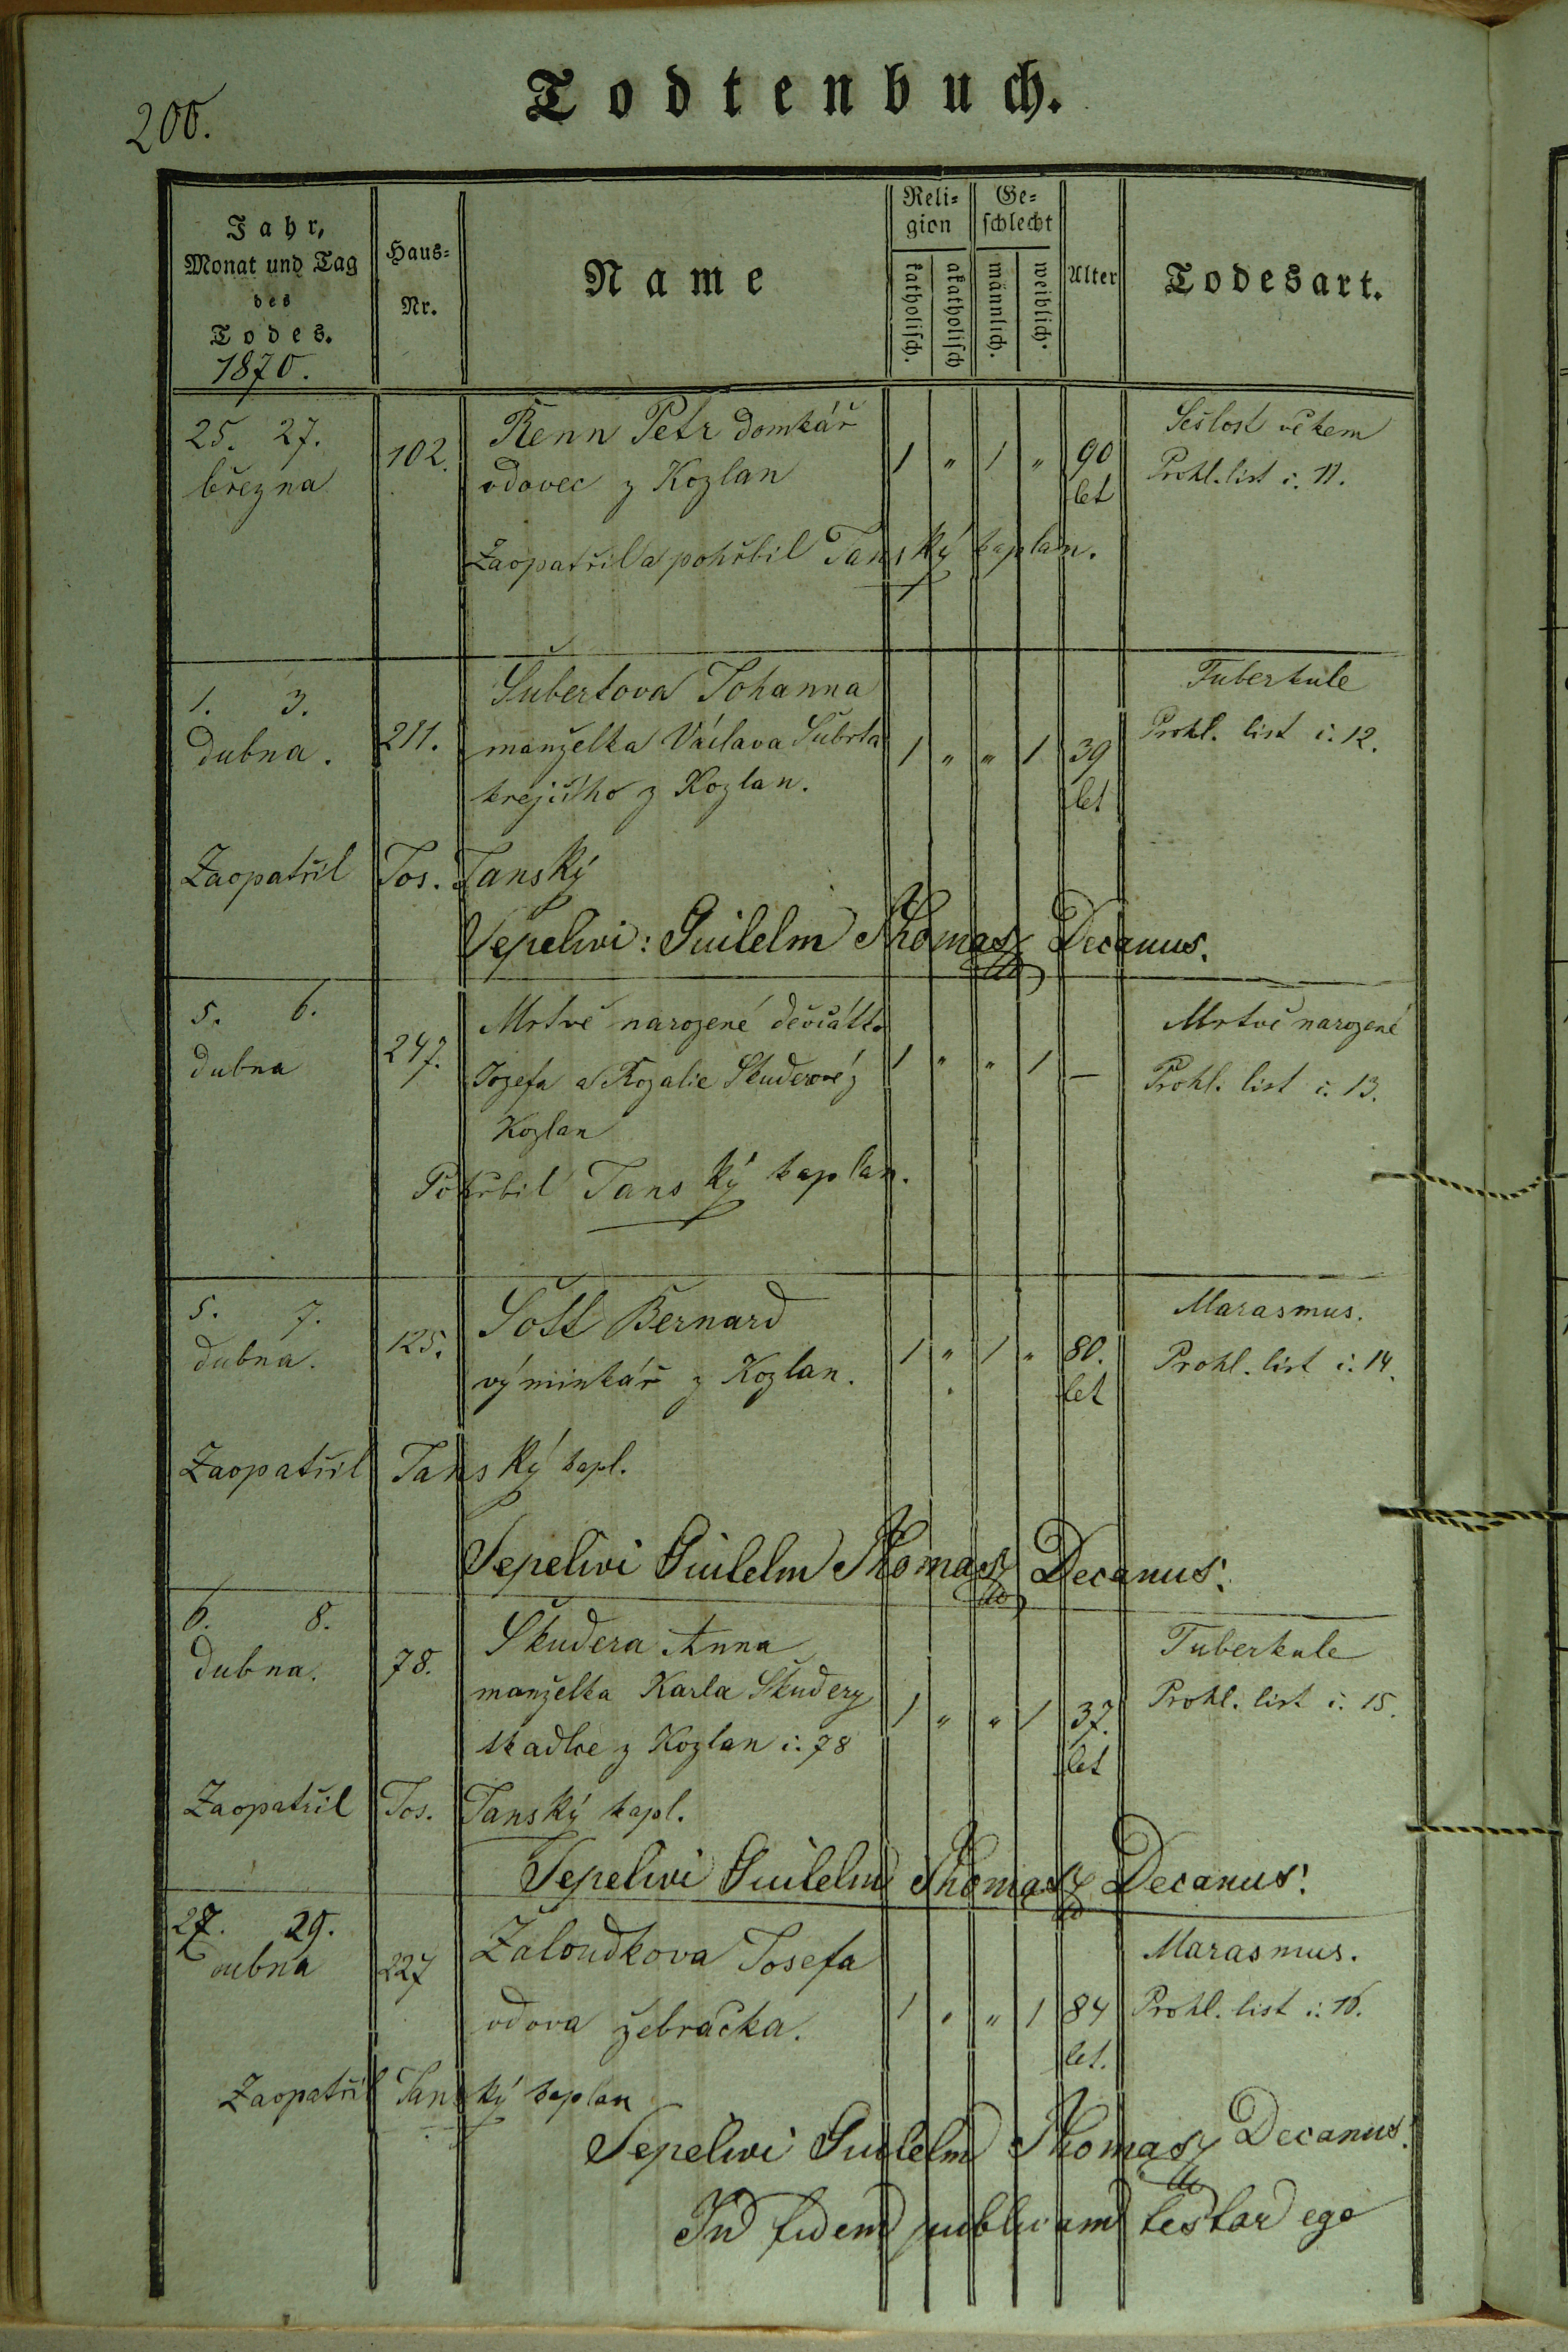 200.
Todtenbuch.
Jahr,
Monat und Tag
des
Todes.
1870.
Haus-
Nr.
Name
Reli-
gion
katholisch.
akatholisch
Ge-
schlecht
männlich.
weiblich.
Alter
Todesart.
25. 27. 102. Renn Petr domkář 1 " 1 " 90 Sešlost věkem
března vdovec z Kozlan let Prohl. list č. 11.
Zaopatřil a pohřbil Tanský kaplan.
1. 3. 211. Šubertova Johanna Tuberkule
dubna. manželka Václava Šubrta 1 " " 1 39 Prohl. list č. 12.
krejčího z Kozlan. let
Zaopatřil Jos. Tanský
Sepelivi: Guilelm Thomas Decanus.
5. 6. 247. Mrtvě narozené děvčátko 1 " " 1 — Mrtvě narozené
dubna Jozefa a Rozalie Skuderové z Prohl. list č. 13.
Kozlan
Pohřbil Tanský kaplan.
5. 7. 125. Šott Bernard 1 " 1 " 80. Marasmus.
dubna. výminkář z Kozlan. let Prohl. list č. 14.
Zaopatřil Tanský kapl.
Sepelivi Guilelm Thomas Decanus.
6. 8. 78. Skudera Anna Tuberkule
dubna. manželka Karla Skudery 1 " " 1 37. Prohl. list č. 15.
tkadlce z Kozlan č. 78 let
Zaopatřil Jos. Tanský kapl.
Sepelivi Guilelm Thomas Decanus.
27. 29. 227 Žaloudkova Josefa Marasmus.
dubna vdova žebračka. 1 " " 1 84 Prohl. list č. 16.
let.
Zaopatřil Tanský kaplan
Sepelivi Guilelm Thomas Decanus.
In fidem publicam testor ego